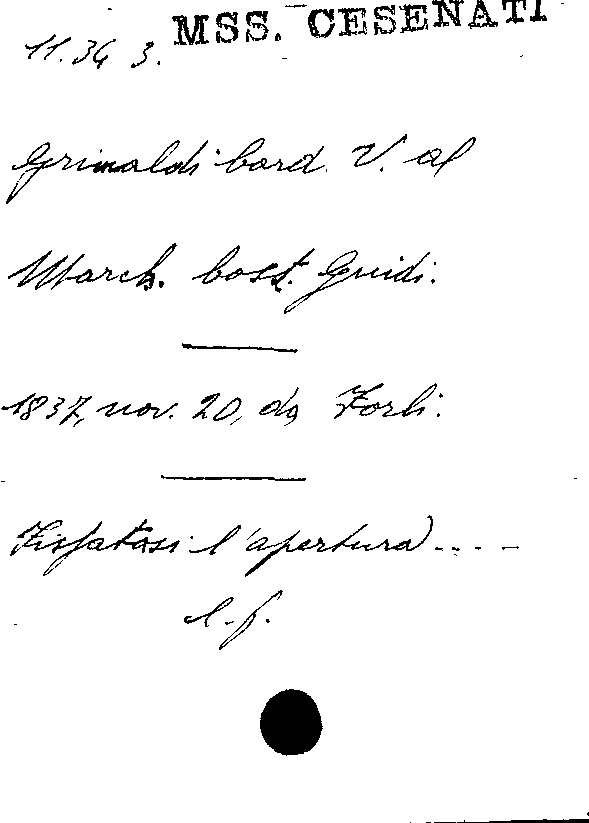 MSS. CESENATI
11.34 3.
Grimaldi Card. V. al
March. Cost. Guidi.
1837, nov. 20, da Forlì.
l'apertura ....
l. f.